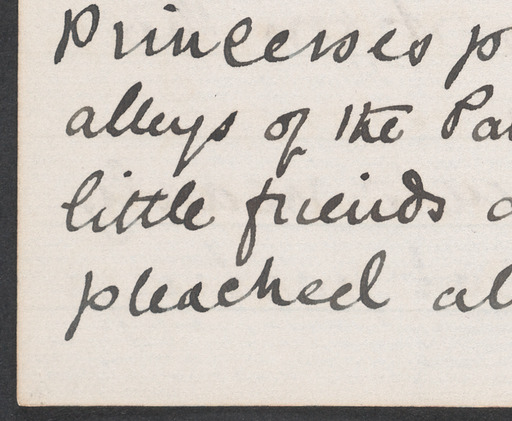 Princesses p
alleys of the Pa
little friends a
pleached al